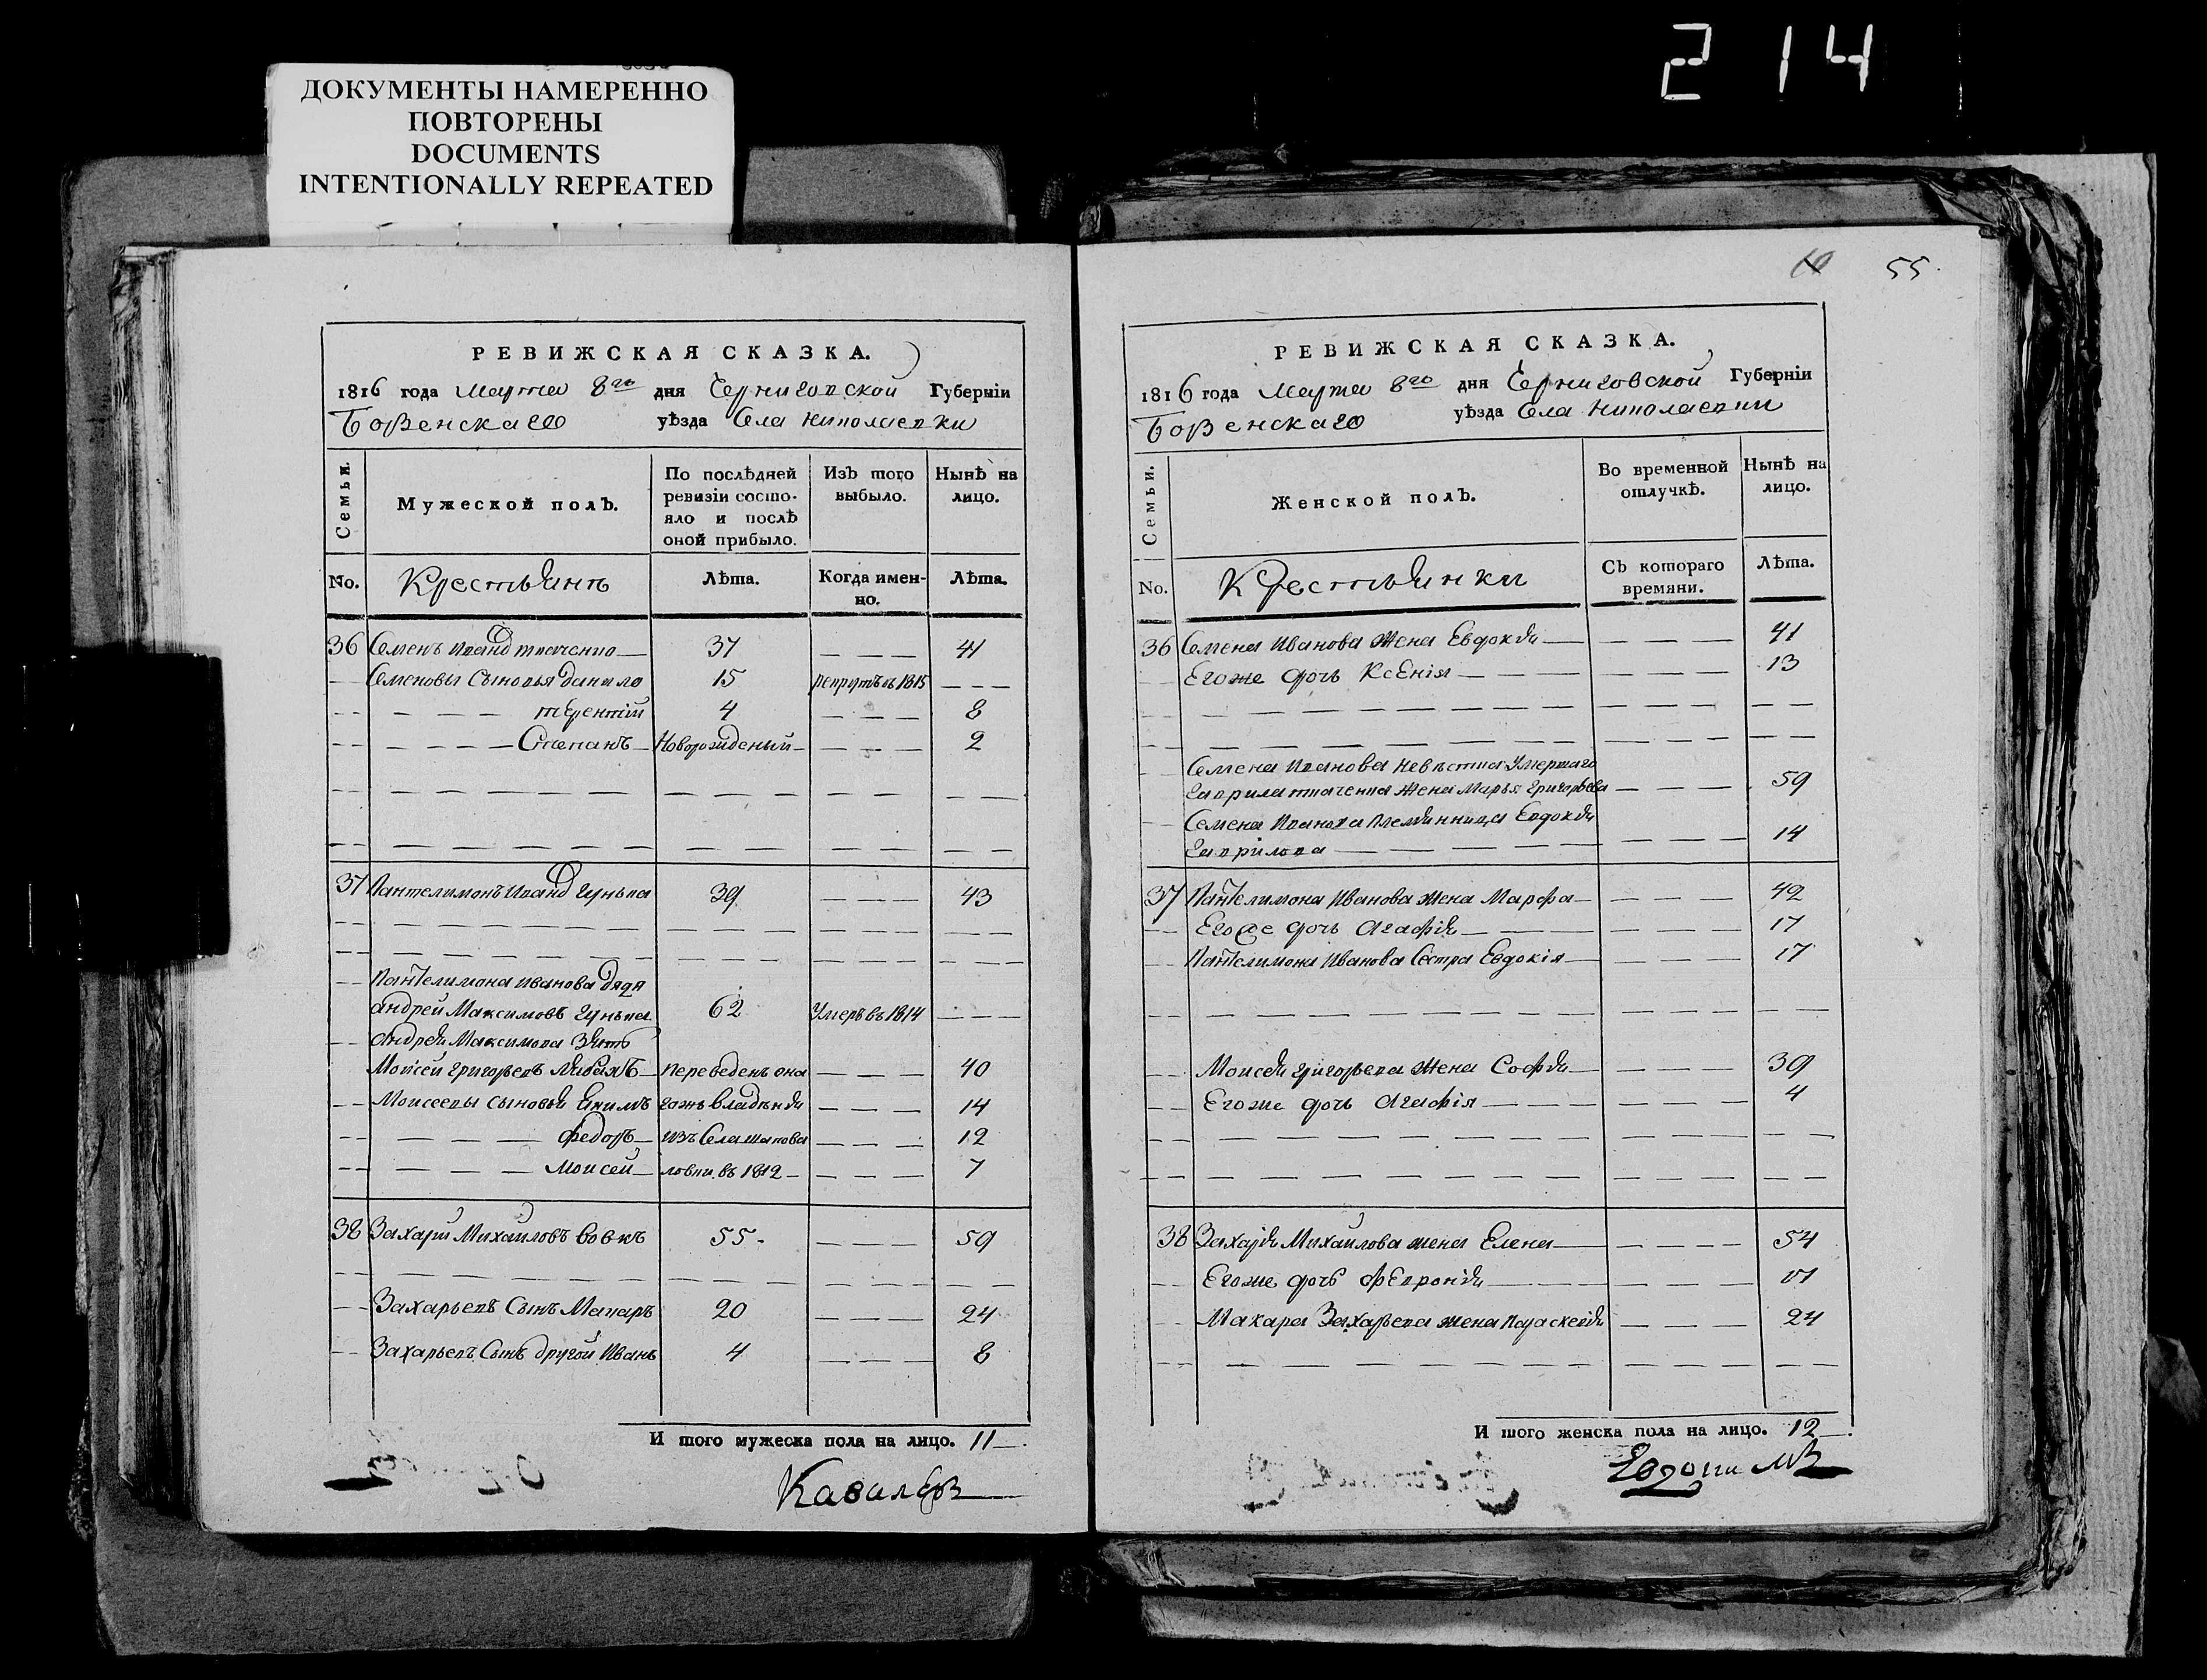 214
ДОКУМЕНТЫ НАМЕРЕННО
ПОВТОРЕНЫ
DOCUMENTS
INTENTIONALLY REPEATED
РЕВИЖСКАЯ СКАЗКА.
1816 года Марта 8го дня Черниговской Губерніи
Борзенскаго уѣзда Села Николаевки
Семьи. Мужеской полъ. По послѣдней ревизіи состояло и послѣ оной прибыло. Изъ того выбыло. Нынѣ на лицо.
No. Крестьянъ Лѣта. Когда именно. Лѣта.
36 Семенъ Иванов Ткаченко 37 — — — 41
Семеновы Сыновья Данило 15 рекрутъ въ 1815 — — —
— — — Терентій 4 — — — 8
— — — Степанъ Новорожденый — — — 2
37 Пантелимонъ Иванов Гунька 39 — — — 43
Пантелимона Иванова Дядя
Андрей Максимовъ Гунька 62 Умеръ въ 1814 — — —
Андрея Максимова Зять
Мойсей Григорьевъ переведенъ она — — — 40
Моисеевы Сыновья Якимъ гожъ владѣнія — — — 14
— — — Федоръ изъ Села Шапова — — — 12
— — — Моисей ловки въ 1812 — — — 7
38 Захарій Михайловъ Вовкъ 55 — — — 59
Захарьевъ Сынъ Макаръ 20 — — — 24
Захарьевъ Сынъ другой Иванъ 4 — — — 8
И того мужеска пола на лицо. 11
55.
РЕВИЖСКАЯ СКАЗКА.
1816 года Марта 8го дня Черниговской Губерніи
Борзенскаго уѣзда Села Николаевки
Семьи. Женской полъ. Во временной отлучкѣ. Нынѣ на лицо.
No. Крестьянки Съ котораго времяни. Лѣта.
36 Семена Иванова Жена Евдокія — — — 41
Егоже дочь Ксенія — — — 13
Семена Иванова Невѣстка Умершаго
Гаврила Ткаченка Жена Марья Григорьева — — — 59
Семена Иванова Племянница Евдокія
Гаврилова — — — 14
37 Пантелимона Иванова Жена Марфа — — — 42
Егоже дочь Агафія — — — 17
Пантелимона Иванова Сестра Евдокія — — — 17
Моисея Григорьева Жена Софія — — — 39
Егоже дочь Агафія — — — 4
38 Захарія Михайлова жена Елена — — — 54
Егоже дочь Февронія — — —
Макара Захарьева жена Параскевія — — — 24
И того женска пола на лицо. 12